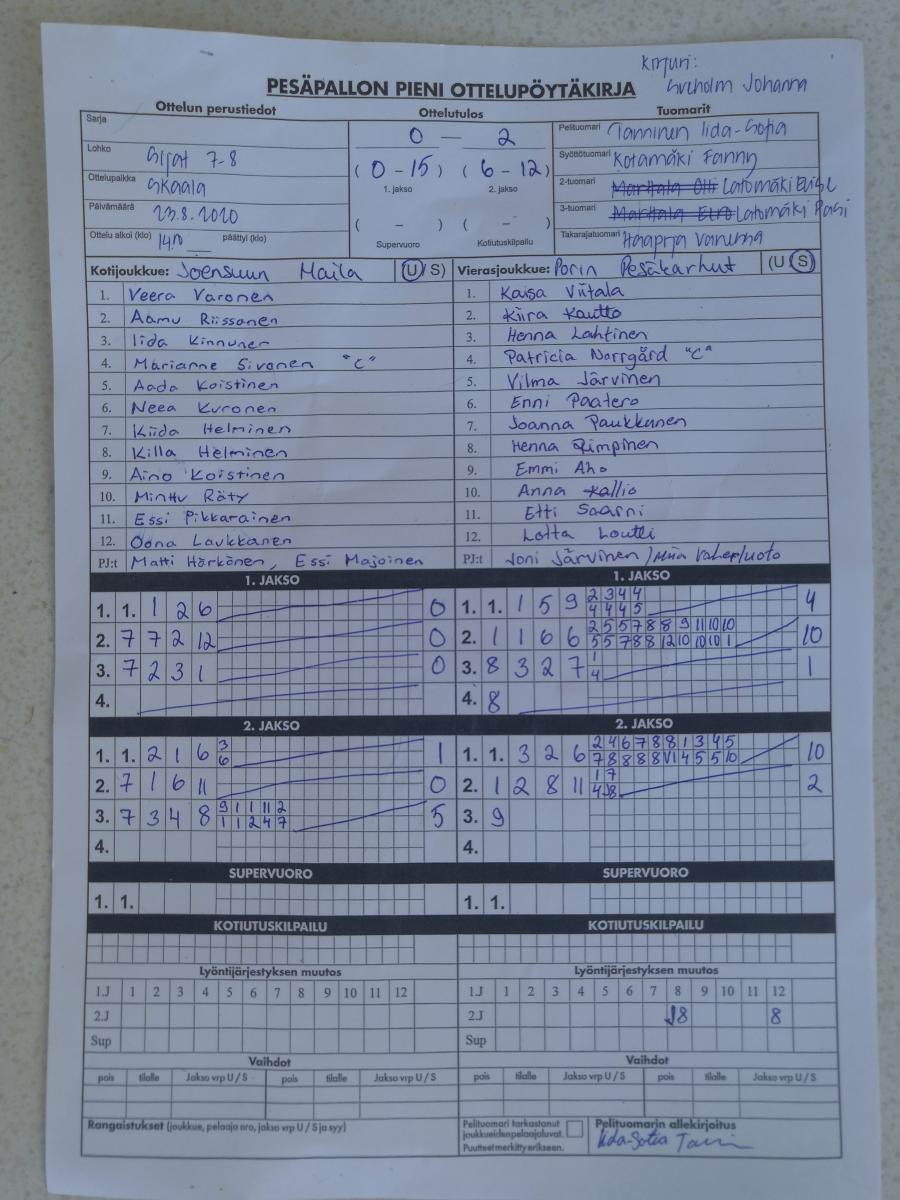 Kirjuri:
Johanna
PESÄPALLON PIENI OTTELUPÖYTÄKIRJA
Ottelun perustiedot Ottelutulos Tuomarit
Sarja
0 — 2
Pelituomari Tanninen Iida-Sofia
Lohko Sijat 7-8
( 0 - 15 ) ( 6 - 12 )
1. jakso 2. jakso
Syöttötuomari Kotamäki Fanny
Ottelupaikka Skaala
2-tuomari Latomäki
Päivämäärä 23.8.2020
3-tuomari Latomäki Pasi
( - ) ( - )
Supervuoro Kotiutuskilpailu
Ottelu alkoi (klo) 14.00 päättyi (klo)
Takarajatuomari Haapoja Vanessa
Kotijoukkue: Joensuun Maila (U/S) Vierasjoukkue: Porin Pesäkarhut (U/S)
1. Veera Varonen 1. Kaisa Viitala
2. Aamu Riissanen 2. Kiira Kautto
3. Iida Kinnunen 3. Henna Lahtinen
4. Marianne Sivonen "C" 4. Patricia Norrgård "C"
5. Aada Koistinen 5. Vilma Järvinen
6. Neea Kuronen 6. Enni Paatero
7. Kiida Helminen 7. Joanna Paukkunen
8. Killa Helminen 8. Henna Rimpinen
9. Aino Koistinen 9. Emmi Aho
10. Minttu Räty 10. Anna Kallio
11. Essi Pikkarainen 11. Etti Saarni
12. Oona Laukkanen 12. Lotta Loutti
PJ:t Matti Härkönen, Essi Majoinen PJ:t Joni Järvinen / Miia Vaherluoto
1. JAKSO 1. JAKSO
1. 1. 1 2 6 0 1. 1. 1 5 9 2 3 4 4 4
4 4 4 5
2. 7 7 2 12 0 2. 1 1 6 6 2 5 5 7 8 8 9 11 10 10 10
5 5 7 8 8 12 10 10 10 1
3. 7 2 3 1 0 3. 8 3 2 7 1 1
4
4. 4. 8
2. JAKSO 2. JAKSO
1. 1. 2 1 6 3 1 1. 1. 3 2 6 2 4 6 7 8 8 1 3 4 5 10
6
2. 7 1 6 11 0 2. 1 2 8 11 1 7 2
3. 7 3 4 8 9 1 1 11 2 5 3. 9
1 1 2 4 7
4. 4.
SUPERVUORO SUPERVUORO
1. 1. 1. 1.
KOTIUTUSKILPAILU KOTIUTUSKILPAILU
Lyöntijärjestyksen muutos Lyöntijärjestyksen muutos
1.J 1 2 3 4 5 6 7 8 9 10 11 12 1.J 1 2 3 4 5 6 7 8 9 10 11 12
2.J 2.J J8 8
Sup Sup
Vaihdot Vaihdot
pois tilalle Jakso vrp U / S pois tilalle Jakso vrp U / S pois tilalle Jakso vrp U / S pois tilalle Jakso vrp U / S
Rangaistukset (joukkue, pelaaja nro, jakso vrp U / S ja syy)
Pelituomari tarkastanut
joukkueidenpelaajaluvat.
Puutteet merkitty erikseen.
Pelituomarin allekirjoitus
Iida-Sofia